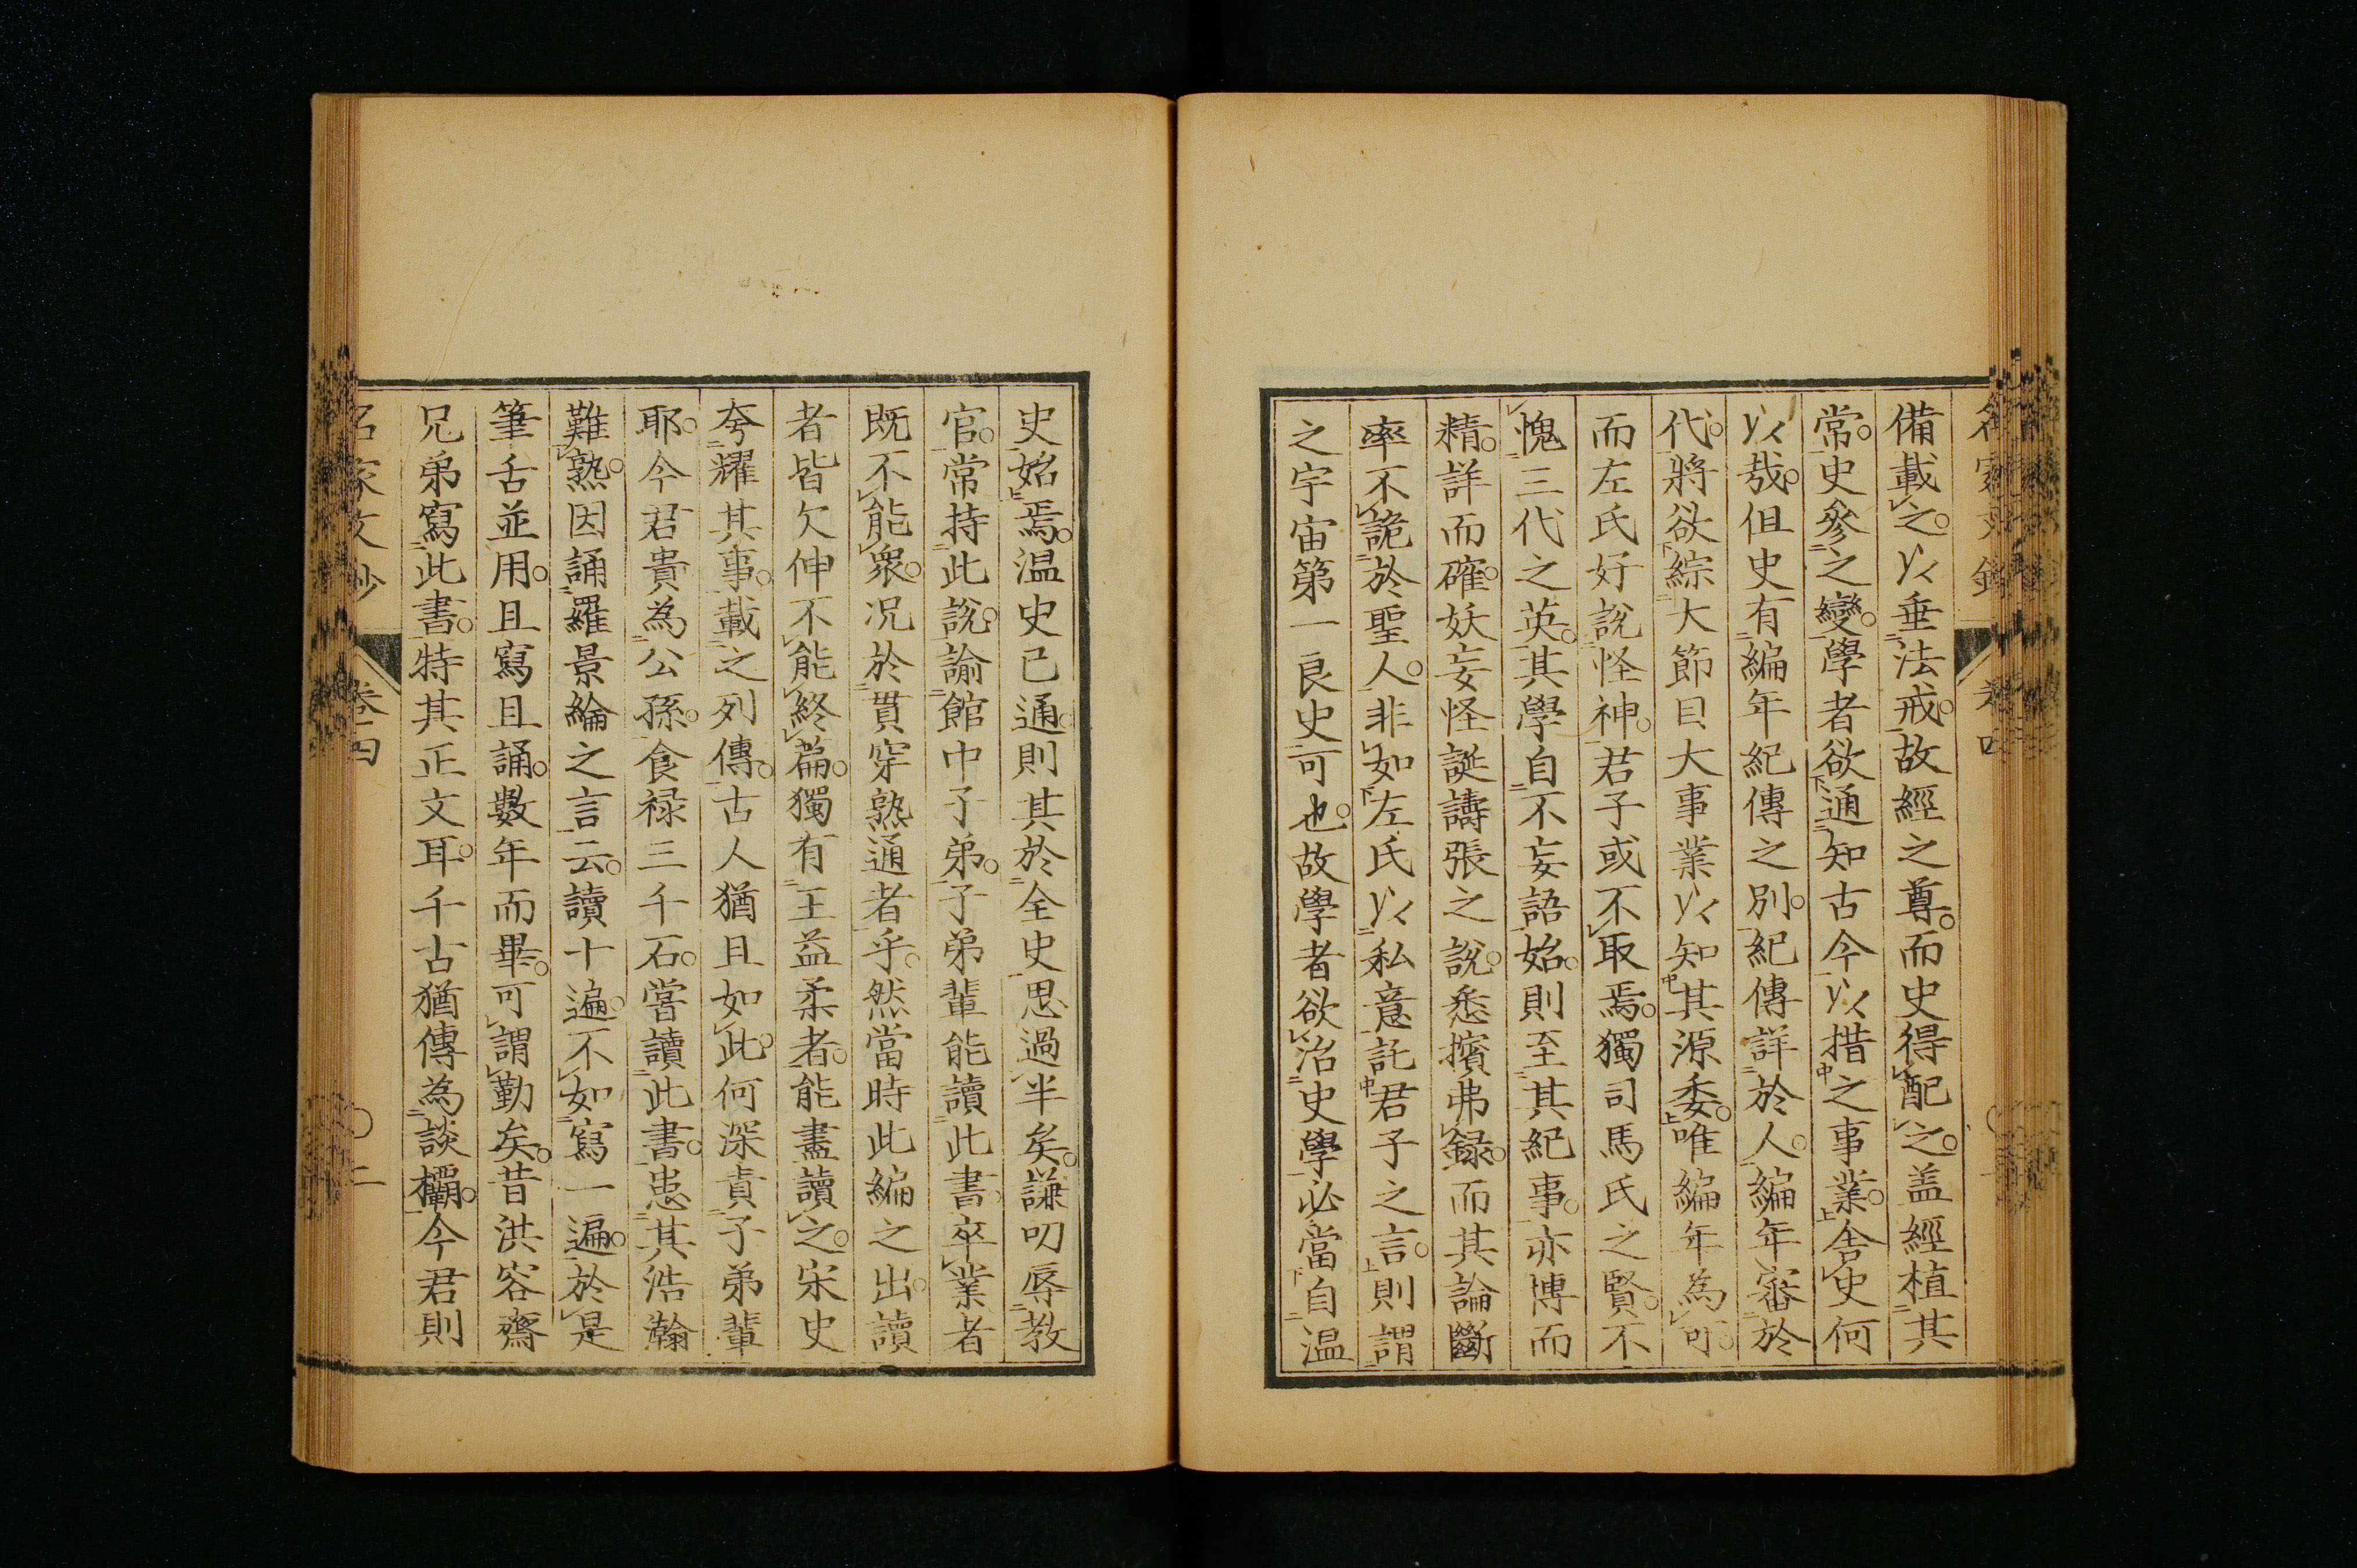 備載之。㕥垂法戒。故經之尊。而史得配之。盖經植其
常。史叅之變。學者欲通知古今㕥措之事業。舎史何
㕥哉。但史有編年紀傳之別。紀傳詳於人。編年審於
代。將欲綜大節目大事業㕥知其源委。唯編年為可。
而左氏好說怪神。君子或不取焉。獨司馬氏之賢。不
愧三代之英。其學自不妄語始。則至其紀事。亦博而
精。詳而確。妖妄怪誕譸張之說。悉擯弗録。而其論斷
率不詭於聖人。非如左氏㕥私意託君子之言。則謂
之宇宙第一良史可也。故學者欲治史學必當自温
史始焉。温史已通。則其於全史思過半矣。謙叨辱教
官。常持此說。諭館中子弟。子弟輩能讀此書。卒業者
既不能衆。况於貫穿熟通者乎。然當時此編之出。讀
者皆欠伸不能終篇。獨有王益柔者。能盡讀之。宋史
夸耀其事。載之列傳。古人猶且如此。何深責子弟輩
耶。今君貴為公孫。食禄三千石。嘗讀此書。患其浩瀚
難熟。因誦羅景綸之言云。讀十遍。不如寫一遍。於是
筆舌並用。且寫且誦。數年而畢。可謂勤矣。昔洪容齋
兄弟寫此書。特其正文耳。千古猶傳為談欛。今君則
名家文抄 卷四 二